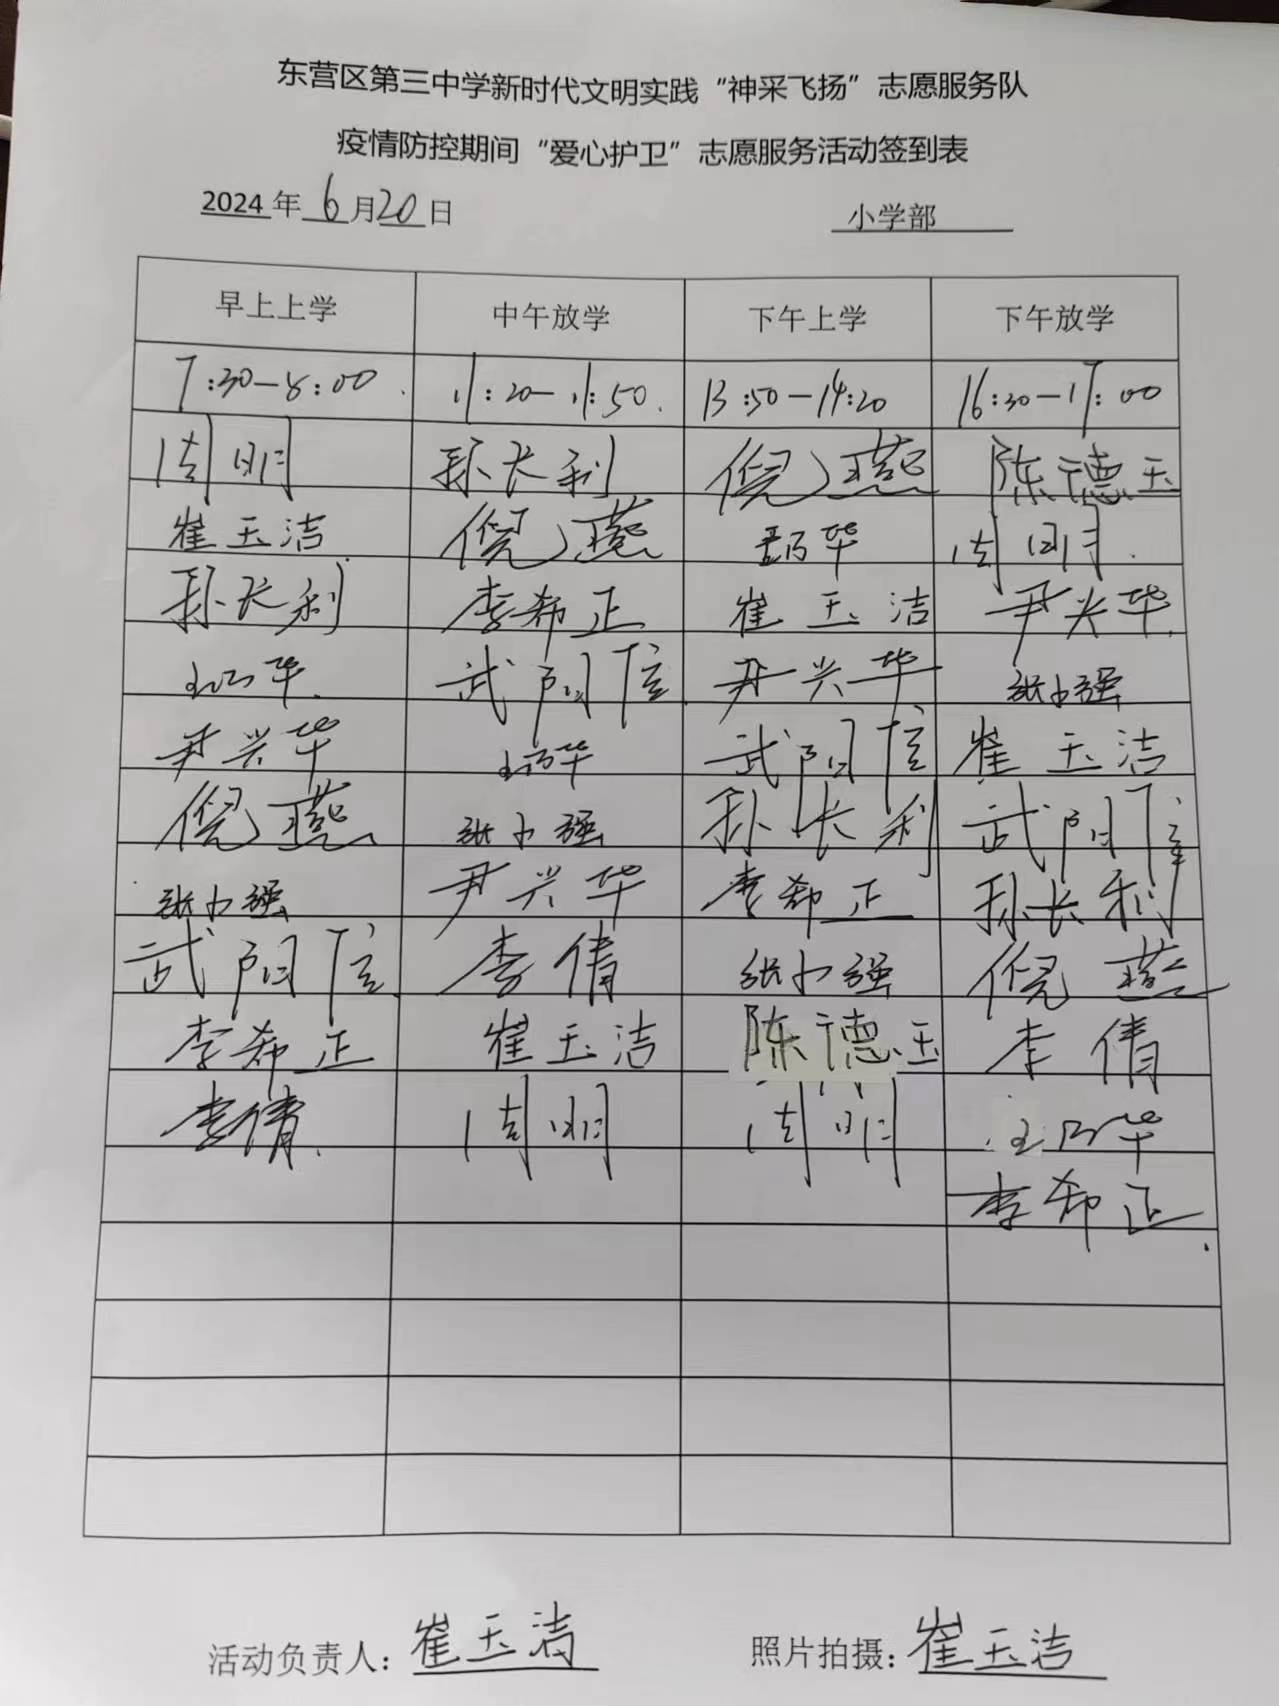 东营区第三中学新时代文明实践“神采飞扬”志愿服务队
疫情防控期间“爱心护卫”志愿服务活动签到表
2024年6月20日 小学部
早上上学 中午放学 下午上学 下午放学
7:30-8:00 11:20-11:50 13:50-14:20 16:30-17:00
周明 孙长利 倪燕 陈德玉
崔玉洁 倪燕 华 周明
孙长利 李希正 崔玉洁 尹兴华
华 武阳 尹兴华 张小强
尹兴华 华 武阳 崔玉洁
倪燕 张小强 孙长利 武阳
张小强 尹兴华 李希正 孙长利
武阳 李倩 张小强 倪燕
李希正 崔玉洁 陈德玉 李倩
李倩 周明 周明 王乃华
李希正
活动负责人：崔玉洁 照片拍摄：崔玉洁